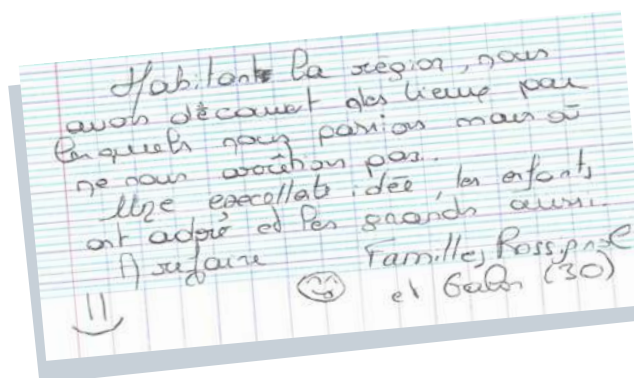 Habitants la région, nous
avons découvert des lieux par
lesquels nous passions mais où
ne nous arrêtions pas.
Une execellate idée, les enfants
ont adoré et les grands aussi.
A refaire Familles Rossignol
et (30)